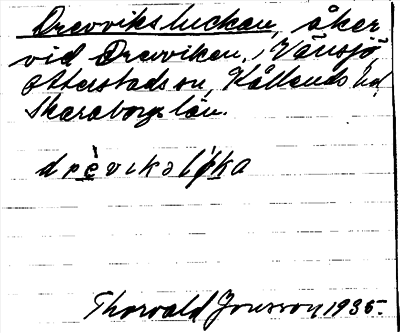 Drevviksluckan, åker
vid Drevviken, i Vänsjö,
Otterstads sn, Kållands hd,
Skaraborgs län.
drèvikəlu̇ka
Thorvald Jonsson 1935.